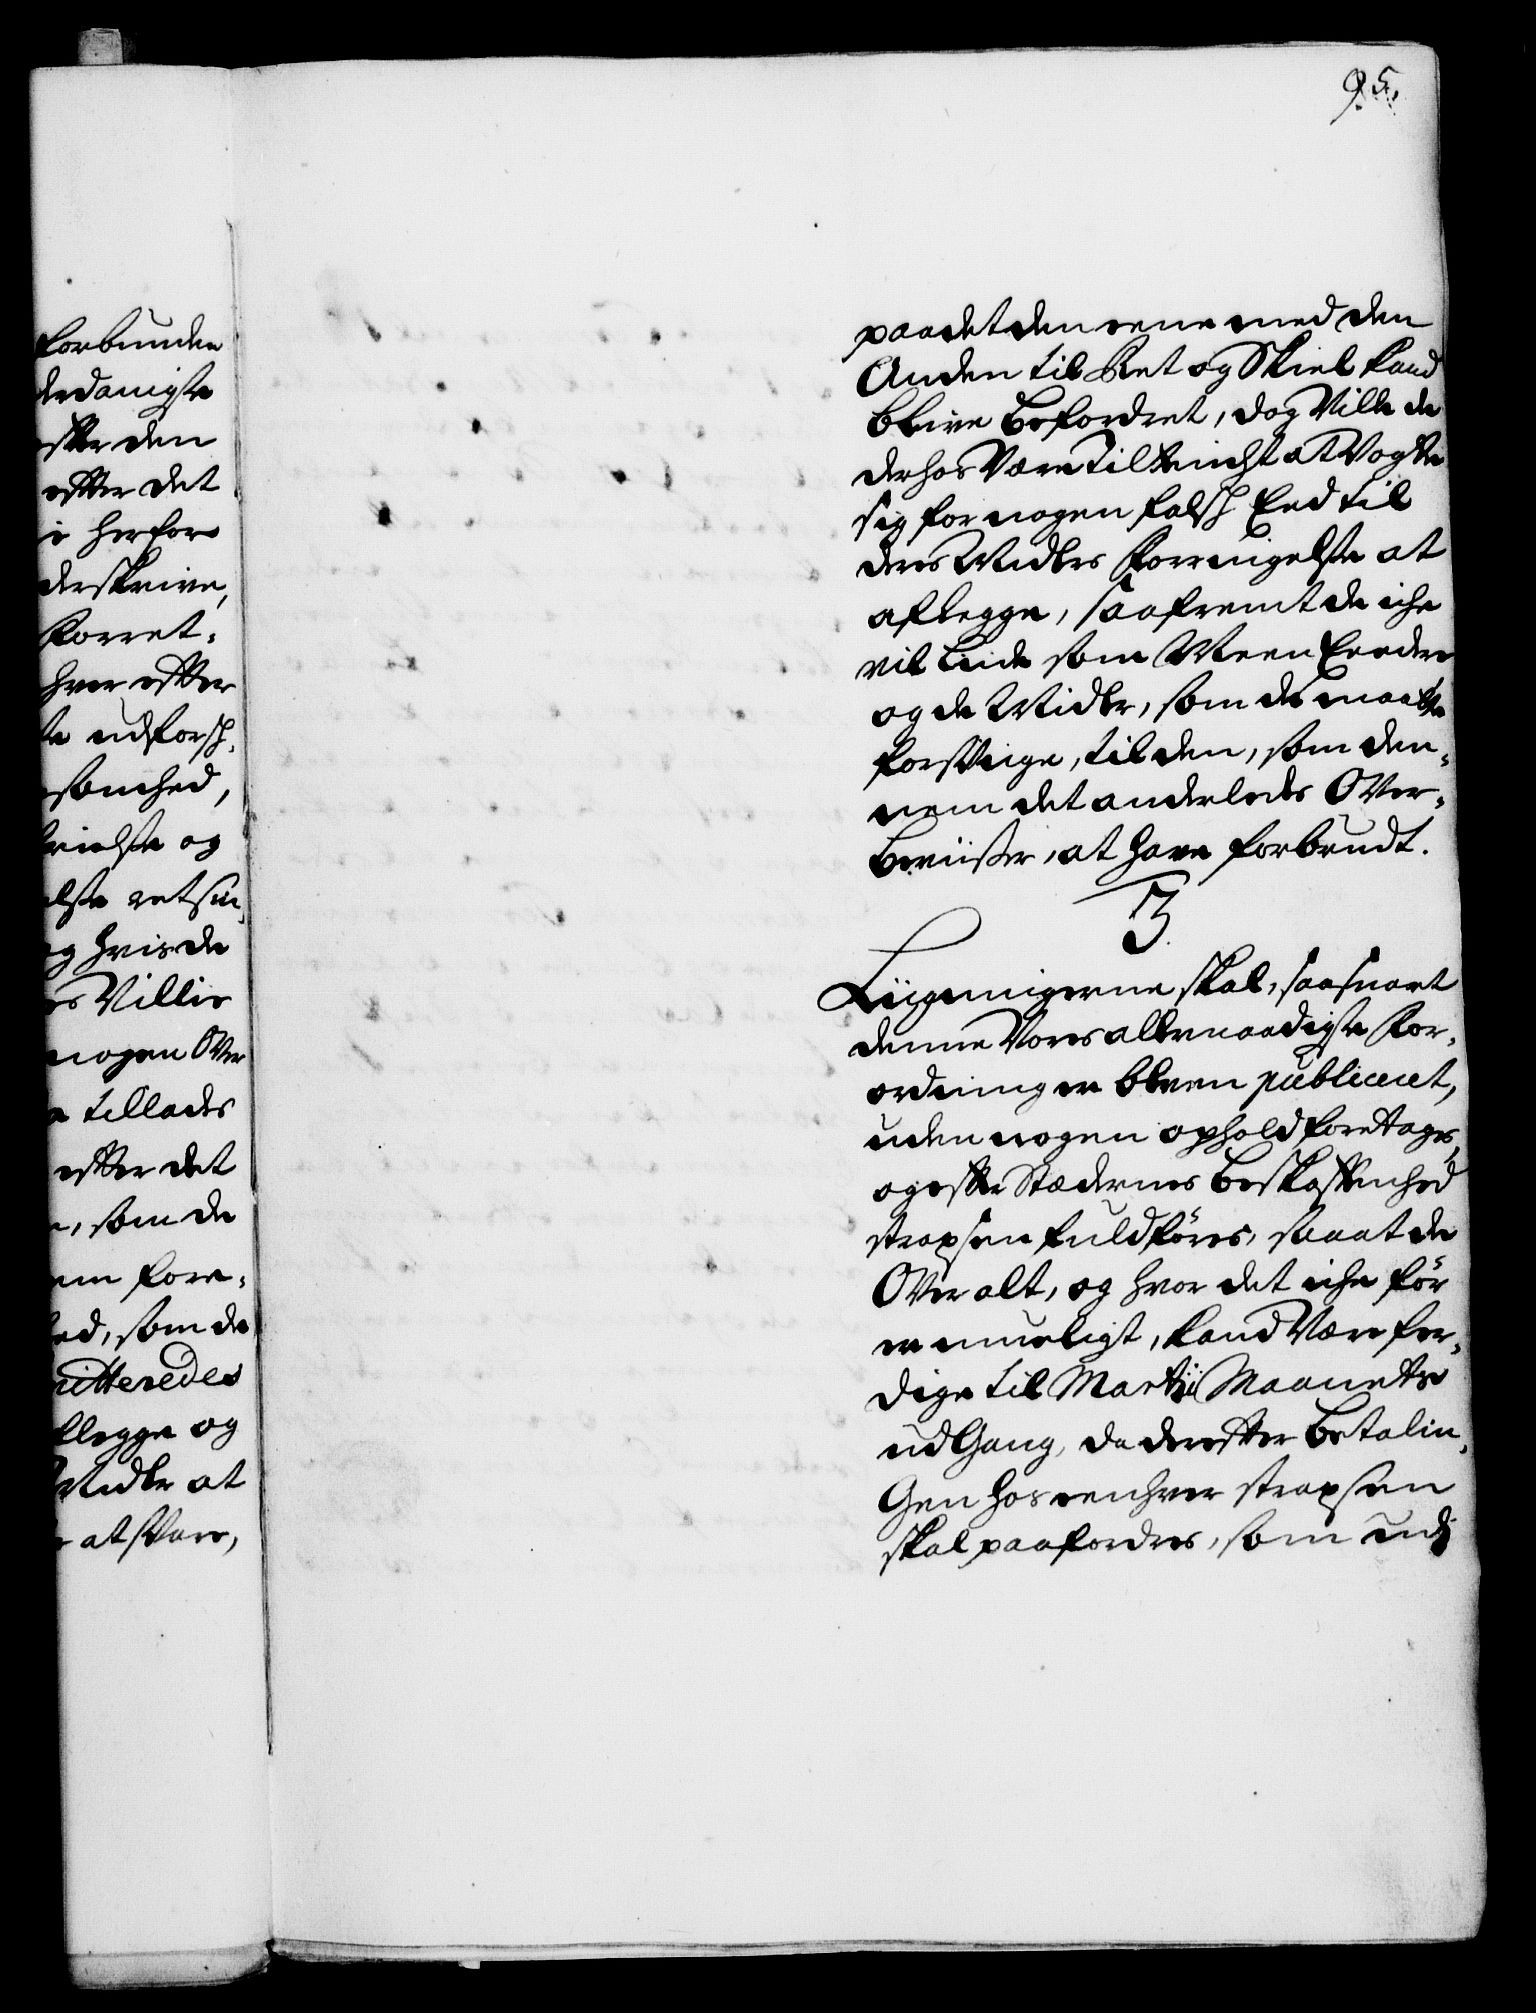 95.
forbunden
derdanigste
effter den
effter det
i herfor
derskrive,
Forret-
hver effter
te udforsk-
somhed,
krivelse og
else retsin-
og hvis de
es Villie
nogen Over
e tillades
effter det
e, som de
em fore-
hed, som de
qvitteredes
flegge og
Midler at
e at svare,
paa det den eene med den
Anden til Ret og Skiel kand
blive befordret, dog Ville de
derhos Være tiltencht at Vogte
sig for nogen falsk Eed til
deres Midlers Forringelse at
aflegge, saafremt de iche
vil liide som Meen Eedere
og de Midler, som de maatte
fortiige, til den, som den-
nem det anderledes Over-
beviiser, at have forbrudt.
3.
Ligningerne skal, saasnart
denne Vores allernaadigste For-
ordning er bleven publiceret,
uden nogen ophold foretages,
og effter Stædernes beskaffenhed
strax sen fuldføres, saa at de
Over alt, og hvor det iche før
er mueligt, kand Være fer-
dige til Martii Maanets
udGang, da dereffter betalin-
Gen hos eenhver strax sen
skal paafordres, som udi